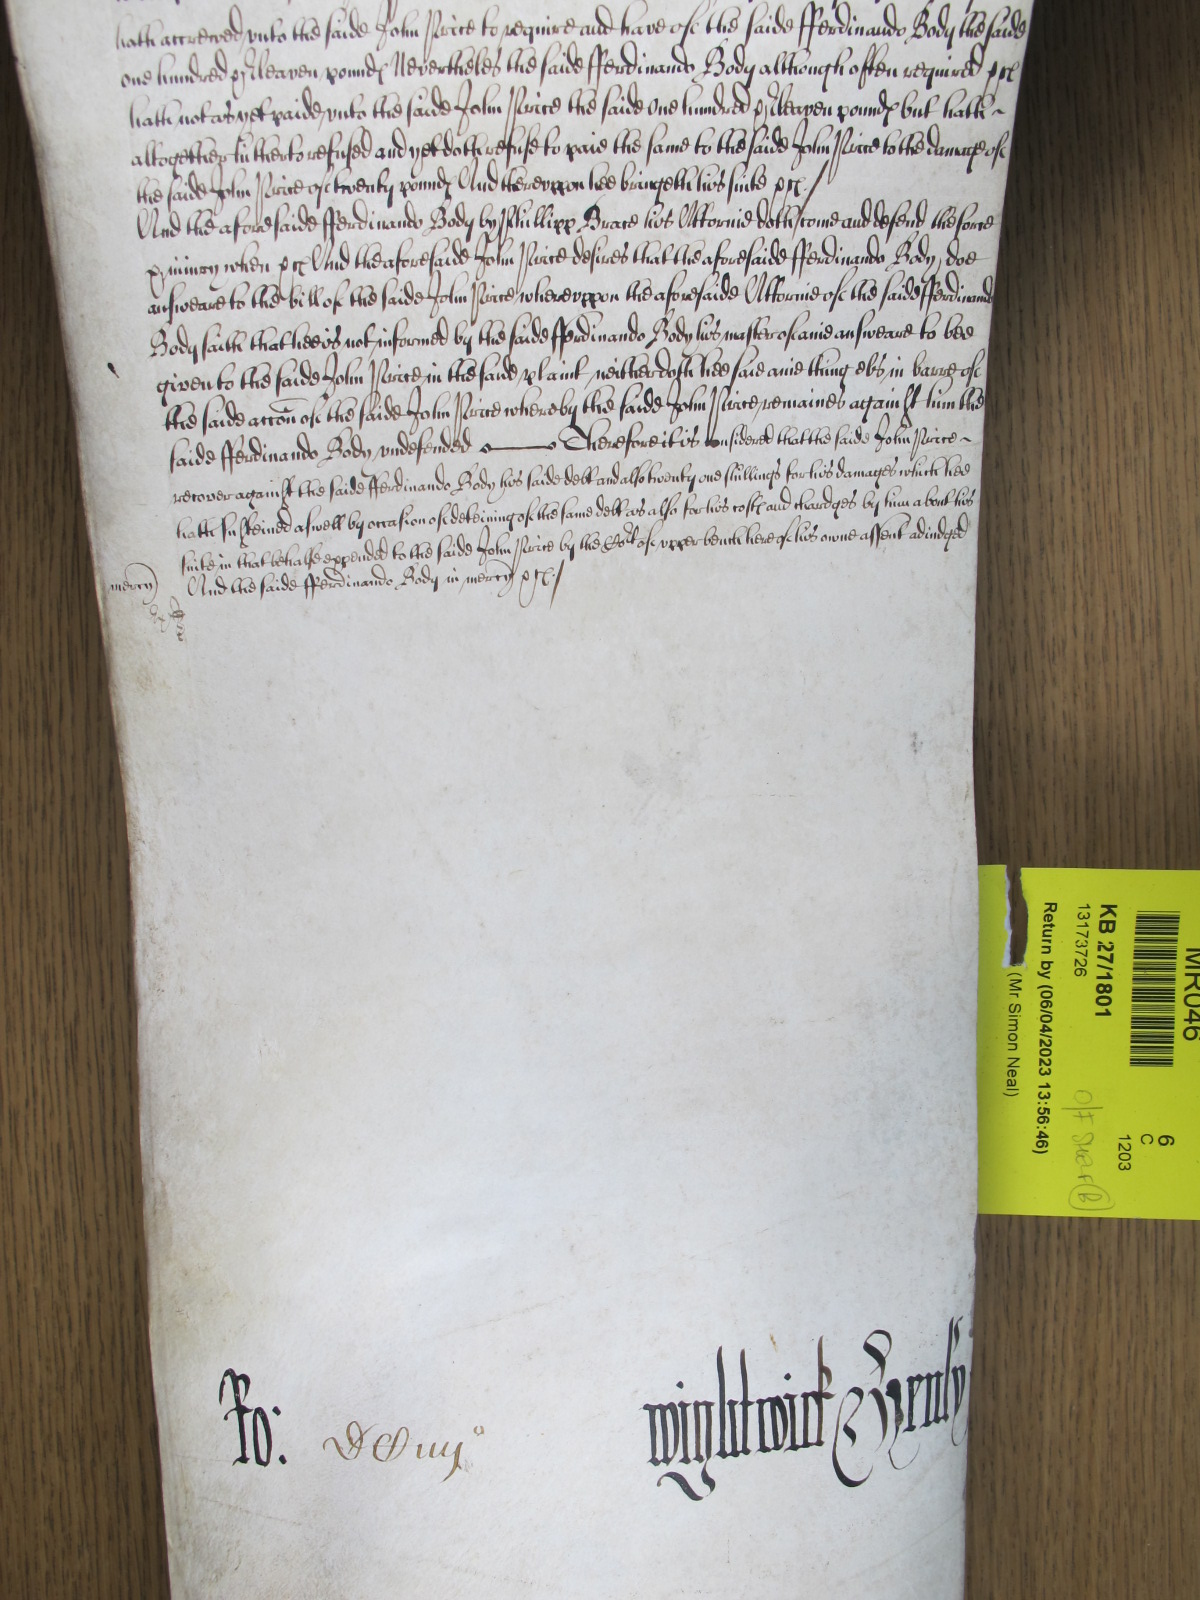 hath accrewed vnto the saide John Price to require and have of the saide fferdinando Body the saide
one hundred & Eleaven pound Nevertheles the saide fferdinando Body although often required &c
hath not as yet paide vnto the saide John Price the saide one hundred & Eleaven pound but hath
altogether hitherto refused and yet doth refuse to paie the same to the saide John Price to the damage of
the saide John Price of twenty pound And therevppon hee bringeth his suite &c /
And the aforesaide fferdinando Body by Phillipp Brace his Attornie doth come and defend the force
& iniury when &c And the aforesaide John Price desires that the aforesaide fferdinando Body doe
answeare to the bill of the saide John Price wherevppon the aforesaide Attornie of the saide fferdinando
Body saith that hee is not informed by the saide fferdinando Body his master of anie answeare to bee
given to the saide John Price in the saide plaint neither doth hee saie anie thing els in barre of
the saide accon of the saide John Price whereby the saide John Price remaines against him the
saide fferdinando Body vndefended Therefore it is considered that the saide John Price
recover against the saide fferdinando Body his saide debt and also twenty one shillings for his damages which hee
hath susteined aswell by occasion of deteining of the same debt as also for his cost and chardges by him about his
suite in that behalfe expended to the saide John Price by the Cort of vpper bench here of his owne assent adiudged
mercy And the saide fferdinando Body in mercy &c /
Ro:
wightwick Henly
MR046
6
C
1203
KB 27/1801
13173726
Return by (06/04/2023 13:56:46)
(Mr Simon Neal)